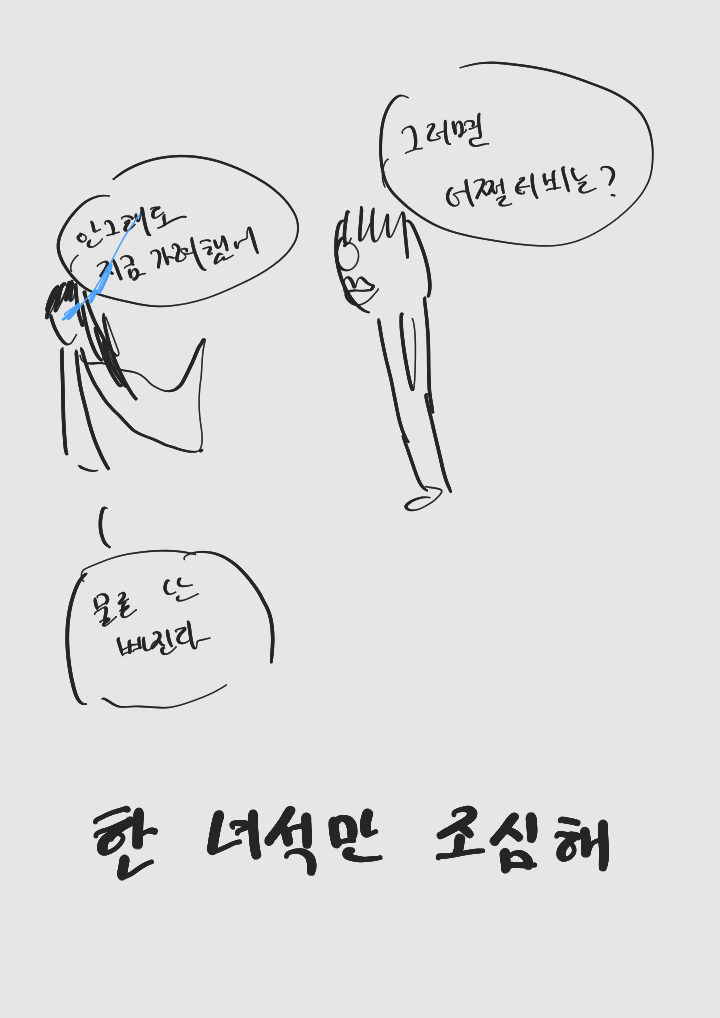 그러면
어쩔
안그래도
지금 가려했어
물론 난
빠진다
한 녀석만 조심해